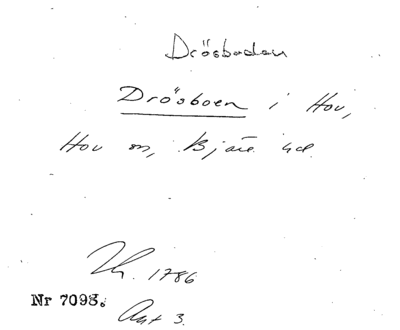 Drösboden
Drösboen i Hov,
Hov sn, Bjäre hd.
Lh. 1786
Nr 7098.
Akt 3.